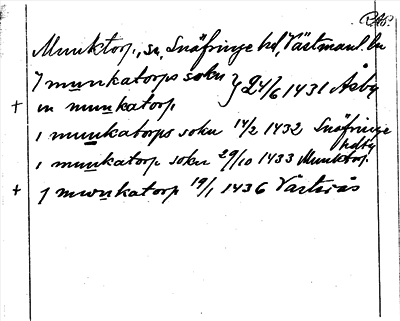 RAp.
Munktorp, sn, Snäfringe hd, Västmanl. län
J munkatorps sokn } 24/6 1431 Åsby
+ in munkatorp
i munkatorps sokn 14/2 1432 Snäfringe hdsting
i munkatorp sokn 29/10 1433 Munktorp.
+ J mwnkatorp 19/1 1436 Västerås